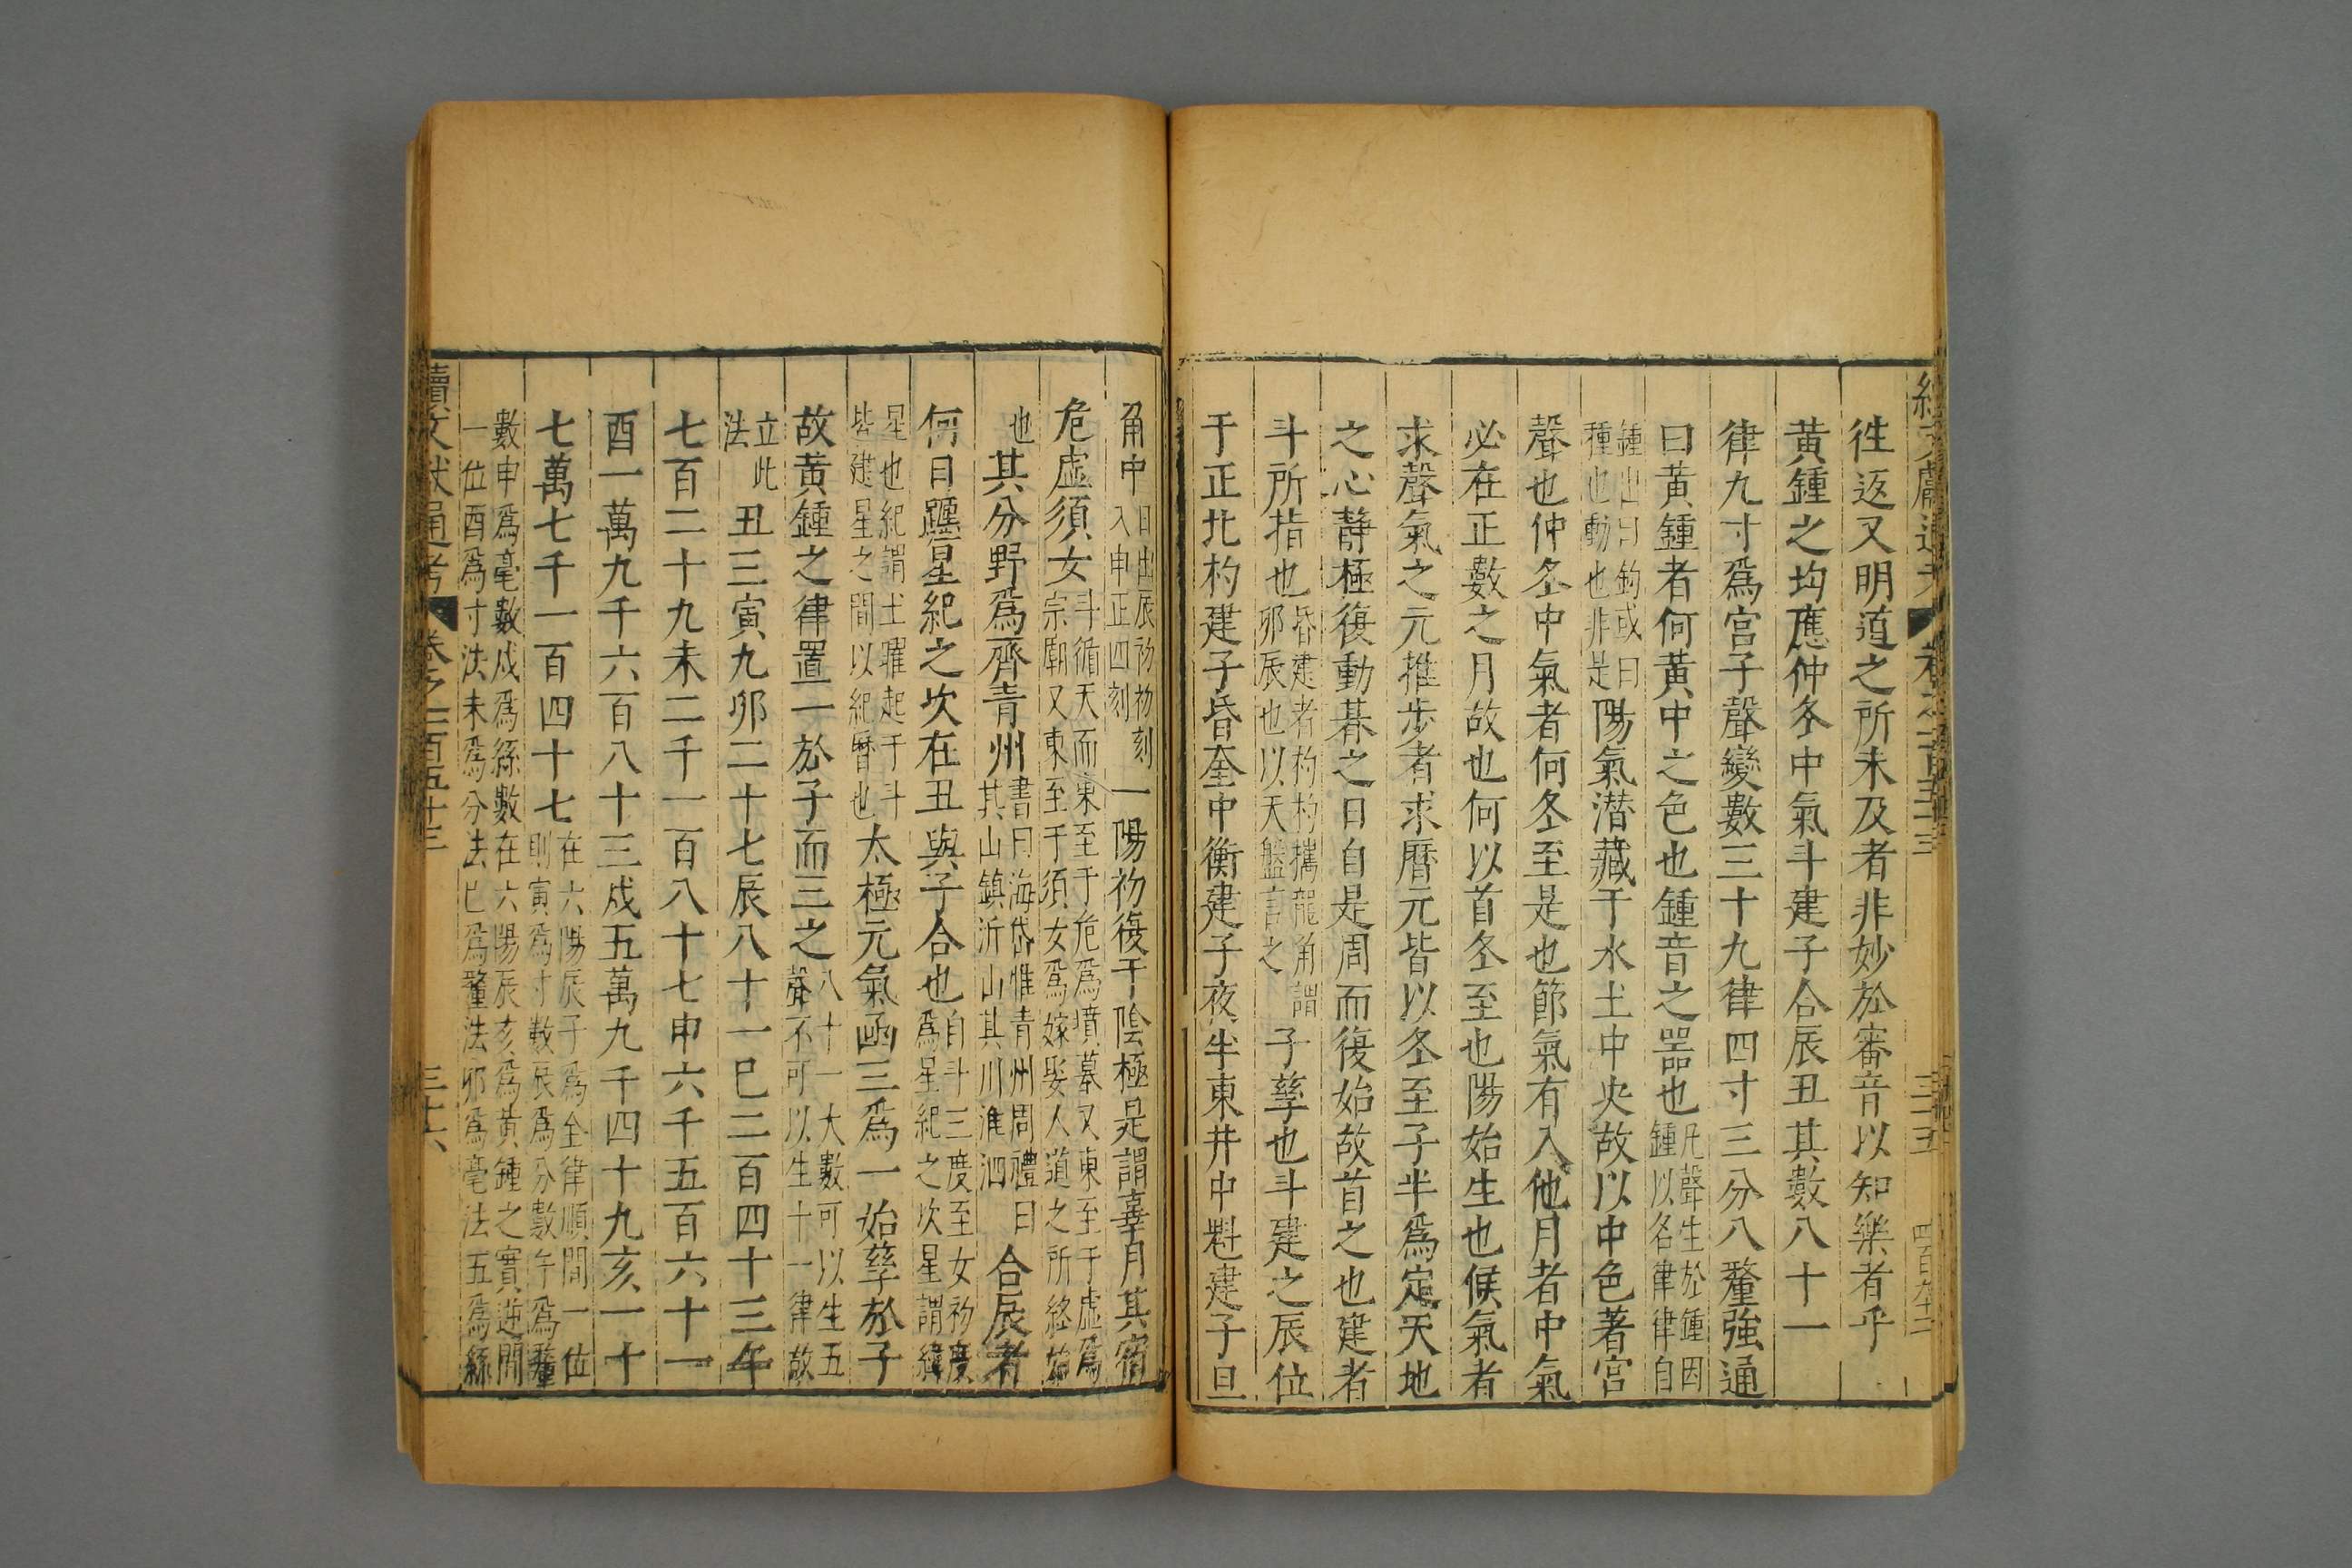 續文獻通考 卷之一百五十三 三十五
徃返又明道之所未及者非妙於審音以知樂者乎
黃鍾之均應仲冬中氣斗建子合辰丑其數八十一
律九寸爲宮子聲變數三十九律四寸三分八釐強通
曰黃鍾者何黃中之色也鍾音之噐也凡聲生於鍾因鍾以名律律自
鍾出曰鈞或曰種也動也非是陽氣潛藏于水土中央故以中色著宮
聲也仲冬中氣者何冬至是也節氣有入他月者中氣
必在正數之月故也何以首冬至也陽始生也候氣者
求聲氣之元推步者求曆元皆以冬至子半爲定天地
之心靜極復動朞之日自是周而復始故首之也建者
斗所指也昏建者杓杓攜龍角謂卯辰也以天盤言之子孳也斗建之辰位
于正北杓建子昏奎中衡建子夜半東井中魁建子旦
角中日出辰初初刻入申正四刻一陽初復于陰極是謂辜月其宿
危虛須女斗循天而東至于危爲墳墓又東至于虛爲宗廟又東至于須女爲嫁娶人道之所終始
也其分野爲齊青州書曰海岱惟青州周禮曰其山鎮沂山其川淮泗合辰者
何日躔星紀之次在丑與子合也自斗三度至女初度爲星紀之次星謂緯
星也紀謂土曜起于斗皆建星之間以紀曆也太極元氣函三爲一始孳於子
故黃鍾之律置一於子而三之八十一大數可以生五聲不可以生十一律故
立此法丑三寅九卯二十七辰八十一巳二百四十三午
七百二十九未二千一百八十七申六千五百六十一
酉一萬九千六百八十三戌五萬九千四十九亥一十
七萬七千一百四十七在六陽辰子爲全律順間一位則寅爲寸數辰爲分數午爲釐
數申爲毫數戌爲絲數在六陽辰亥爲黃鍾之實逆間一位酉爲寸法未爲分法巳爲釐法卯爲毫法丑爲絲
續文獻通考 卷之一百五十三 三十六